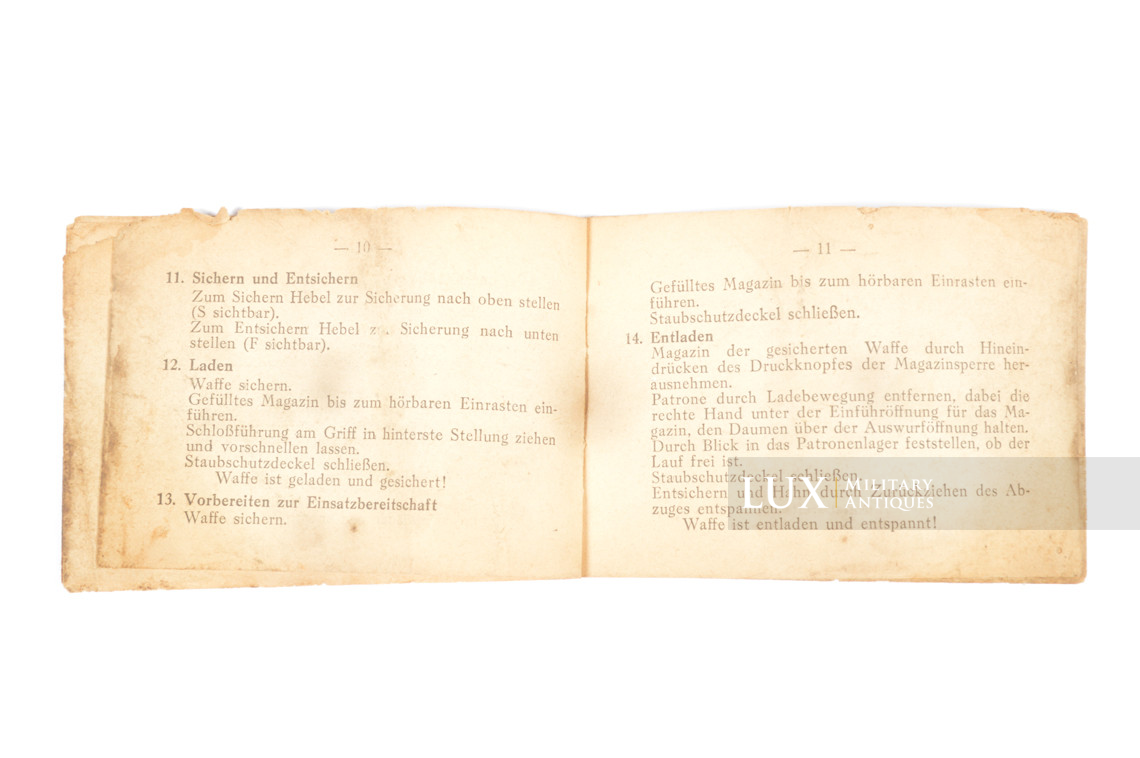 — 10 —
11. Sichern und Entsichern
Zum Sichern Hebel zur Sicherung nach oben stellen
(S sichtbar).
Zum Entsichern Hebel z . Sicherung nach unten
stellen (F sichtbar).
12. Laden
Waffe sichern.
Gefülltes Magazin bis zum hörbaren Einrasten ein-
führen.
Schloßführung am Griff in hinterste Stellung ziehen
und vorschnellen lassen.
Staubschutzdeckel schließen.
Waffe ist geladen und gesichert!
13. Vorbereiten zur Einsatzbereitschaft
Waffe sichern.
— 11 —
Gefülltes Magazin bis zum hörbaren Einrasten ein-
führen.
Staubschutzdeckel schließen.
14. Entladen
Magazin der gesicherten Waffe durch Hinein-
drücken des Druckknopfes der Magazinsperre her-
ausnehmen.
Patrone durch Ladebewegung entfernen, dabei die
rechte Hand unter der Einführöffnung für das Ma-
gazin, den Daumen über der Auswurföffnung halten.
Durch Blick in das Patronenlager feststellen, ob der
Lauf frei ist.
Staubschutzdeckel schließen.
Entsichern und Hahn durch Zurückziehen des Ab-
zuges entspannen.
Waffe ist entladen und entspannt!
LUX MILITARY
ANTIQUES